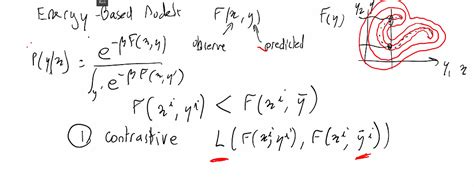 Energy-Based Models F(x,y) F(y) y₂ y
observe predicted
P(y|x) = e^{-βF(x,y)} / ∫_{y'} e^{-βF(x,y')}
y₁ x
F(xⁱ, yⁱ) < F(xⁱ, ȳ)
① contrastive L(F(xⁱ, yⁱ), F(xⁱ, ȳⁱ))